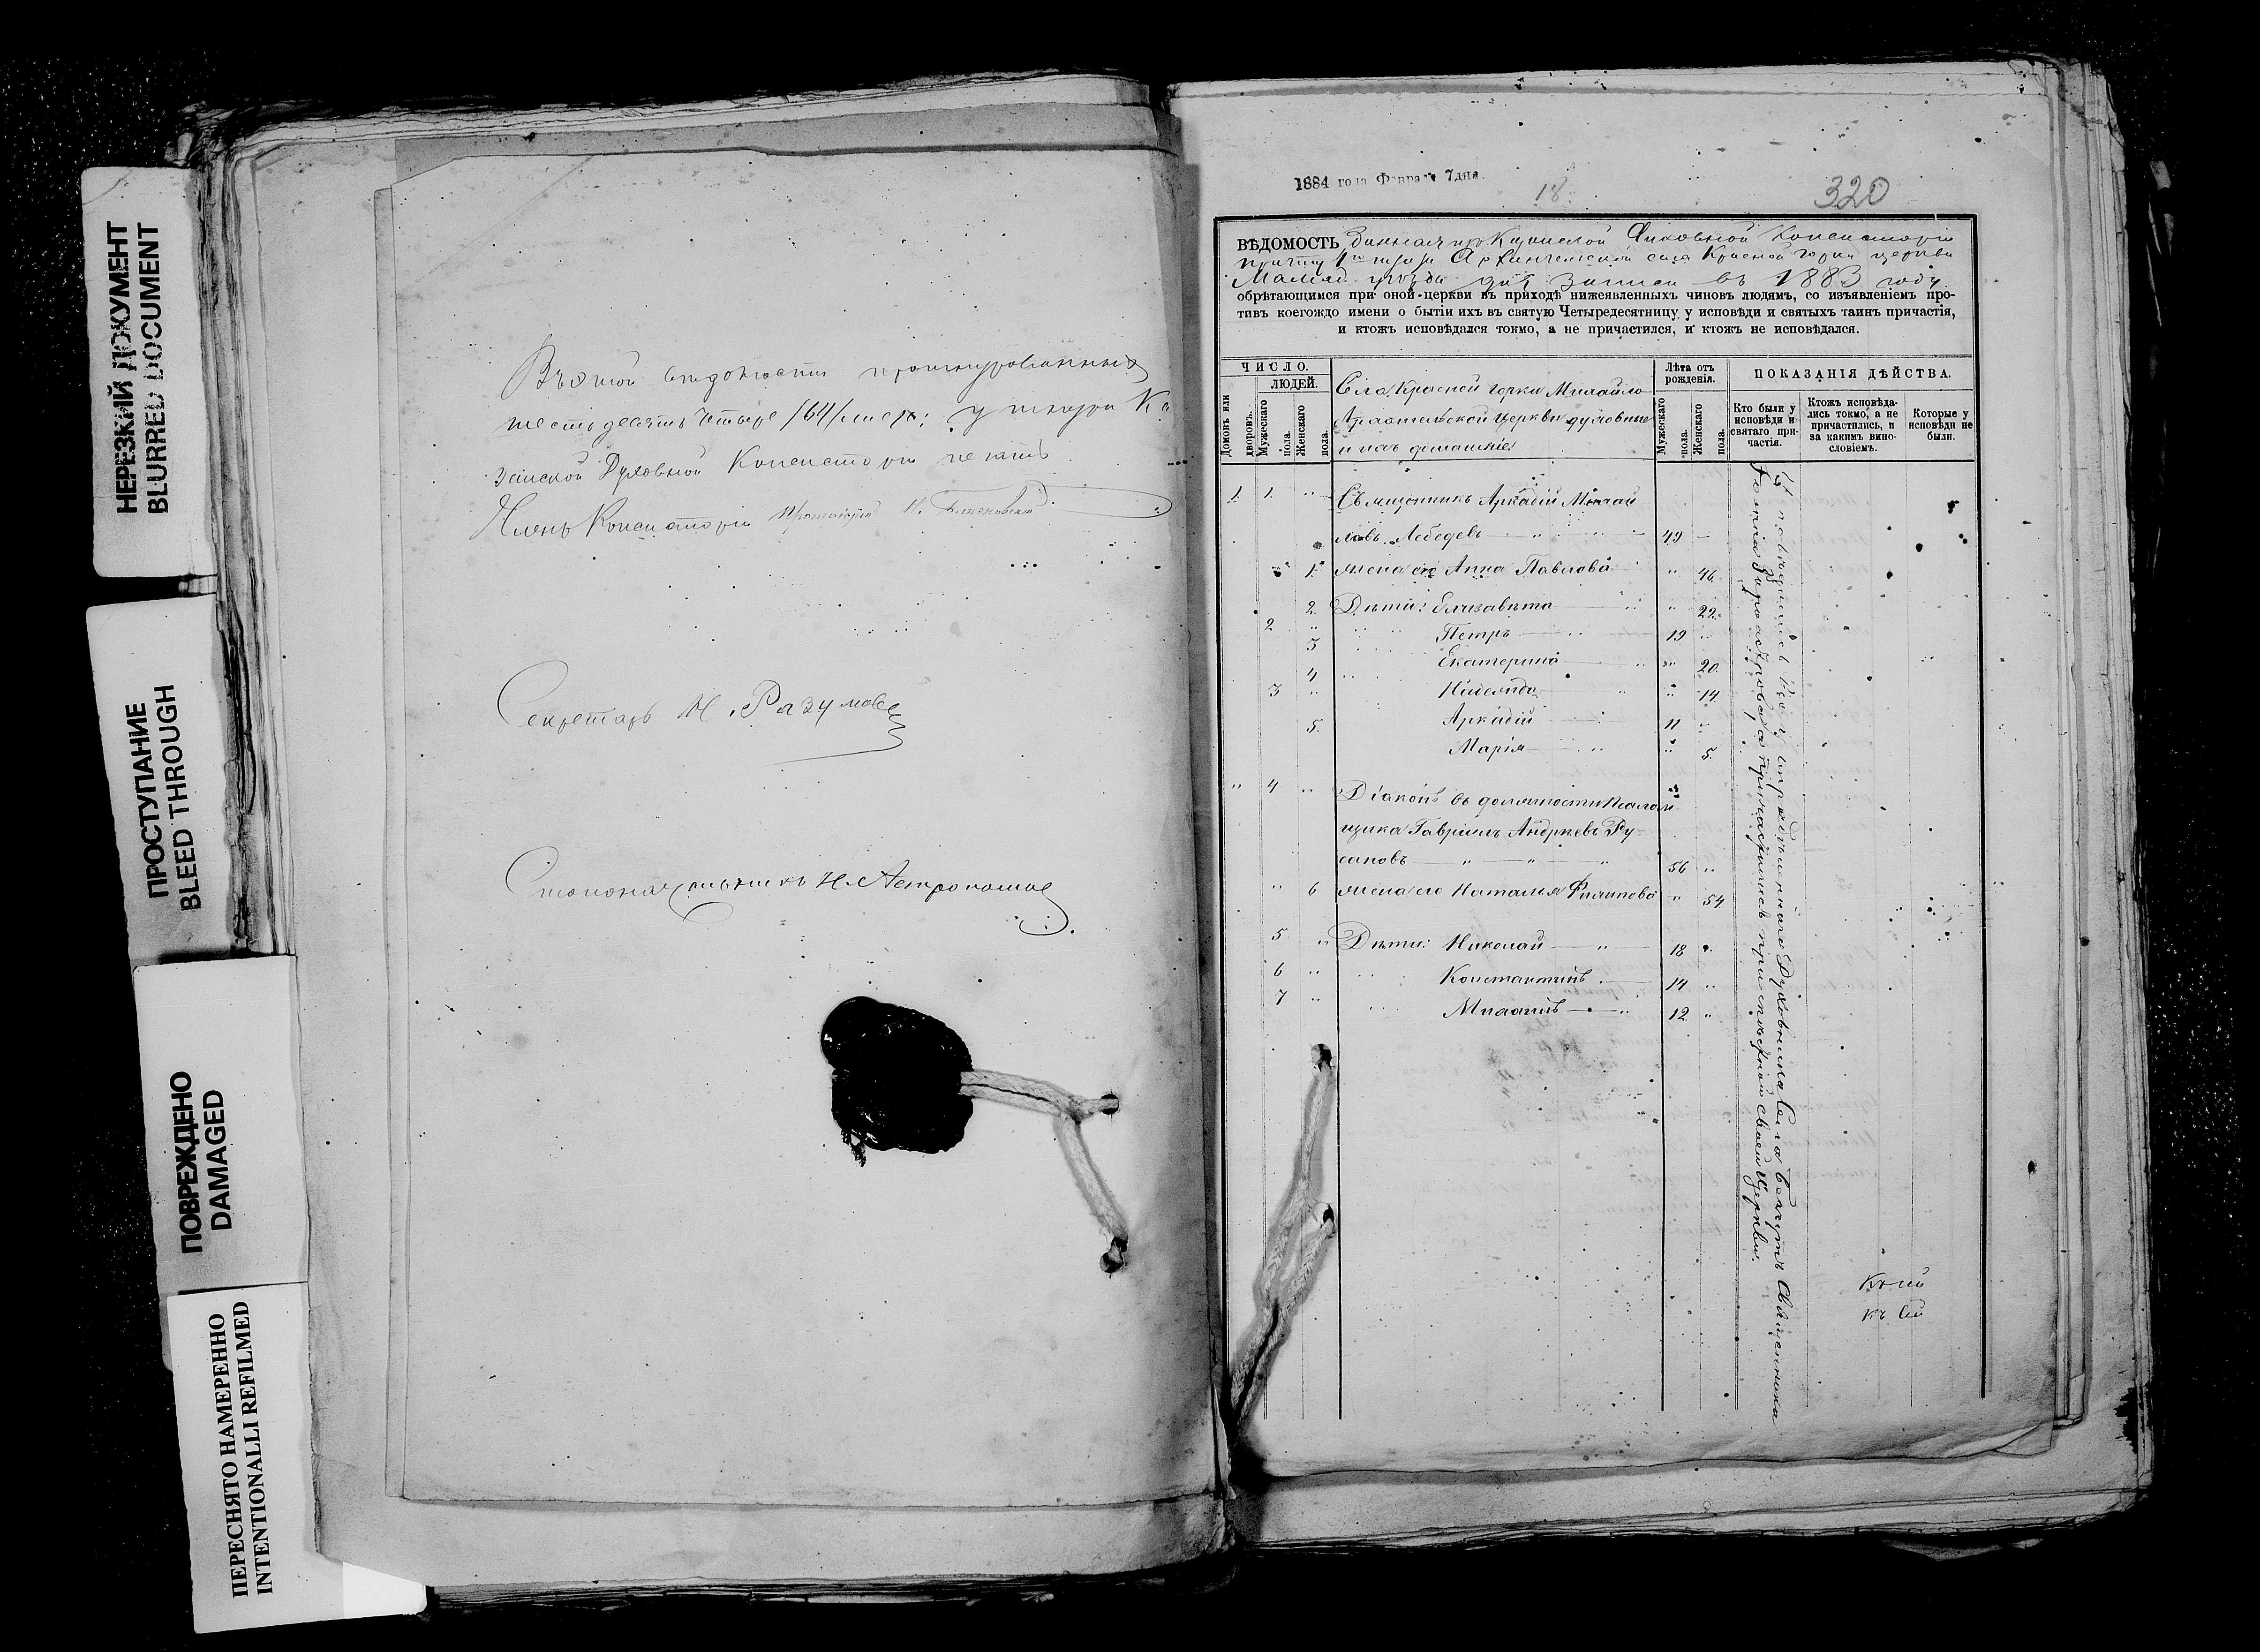 НЕРЕЗКИЙ ДОКУМЕНТ
BLURRED DOCUMENT
ПРОСТУПАНИЕ
BLEED THROUGH
ПОВРЕЖДЕНО
DAMAGED
ПЕРЕСНЯТО НАМЕРЕННО
INTENTIONALLI REFILMED
Въ этой ведомости прошнурованныхъ
шестьдесятъ четыре /64/ листа; у шнура Ка
занской Духовной Консисторіи печать.
Членъ Консисторіи Протоіерей
Секретарь Н. Разумов
Столоначальникъ Н.
1884 года Февраля 7 дня.
18.
320
ВѢДОМОСТЬ данная изъ Казанской Духовной Консисторіи
причту Архангельской села Красной Горки церкви
Мамад. уѣзда для записи въ 1883 году
обрѣтающимся при оной церкви въ приходѣ нижеявленныхъ чиновъ людямъ, со изъявленіемъ про-
тивъ коегождо имени о бытіи ихъ въ святую Четыредесятницу у исповѣди и святыхъ таинъ причастія,
и ктожъ исповѣдался токмо, а не причастился, и ктожъ не исповѣдался.
ЧИСЛО.
ЛЮДЕЙ.
Домовъ или дворовъ.
Мужескаго пола.
Женскаго пола.
Села Красной Горки Михайло
Архангельской церкви духовные
и ихъ домашніе:
Лѣта отъ рожденія.
Мужескаго пола.
Женскаго пола.
ПОКАЗАНІЯ ДѢЙСТВА.
Кто были у исповѣди и святаго причастія.
Ктожъ исповѣдались токмо, а не причастились, и за какимъ винословіемъ.
Которые у исповѣди не были.
1. 1. " Священникъ Аркадій Михай
ловъ Лебедевъ 49 -
1. жена его Анна Павлова " 46.
2. Дѣти: Елизавета " 22.
2 " Петръ 19 "
3 Екатерина " 20.
4 " 14
3 " Аркадій 11 "
5. Марія " 5.
" 4 " Діаконъ въ должности Псалом
щика Гавріилъ Андреевъ Ру-
сановъ 56 "
" 6 жена его Наталья Филипова " 54
5 " Дѣти: Николай 18 "
6 " Константинъ 14 "
7 " Михаилъ 12 "
причастились при своей церкви.